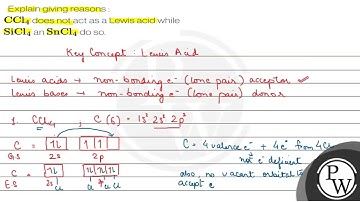 Explain giving reasons :
CCl₄ does not act as a Lewis acid while
SiCl₄ an SnCl₄ do so.
Key Concept : Lewis Acid
Lewis acids → non-bonding e⁻ (lone pair) acceptor ✓
Lewis bases → non-bonding e⁻ (lone pair) donor
1. CCl₄ ; C (6) : 1s² 2s² 2p²
C = 1l 1 1
G.S 2s 2p
C = 4 valence e⁻ + 4e⁻ from 4Cl
not e⁻ deficient
C = 1l 1l 1l 1l
E.S 2s Cl Cl Cl
also, no vacant orbitals to
accept e
PW